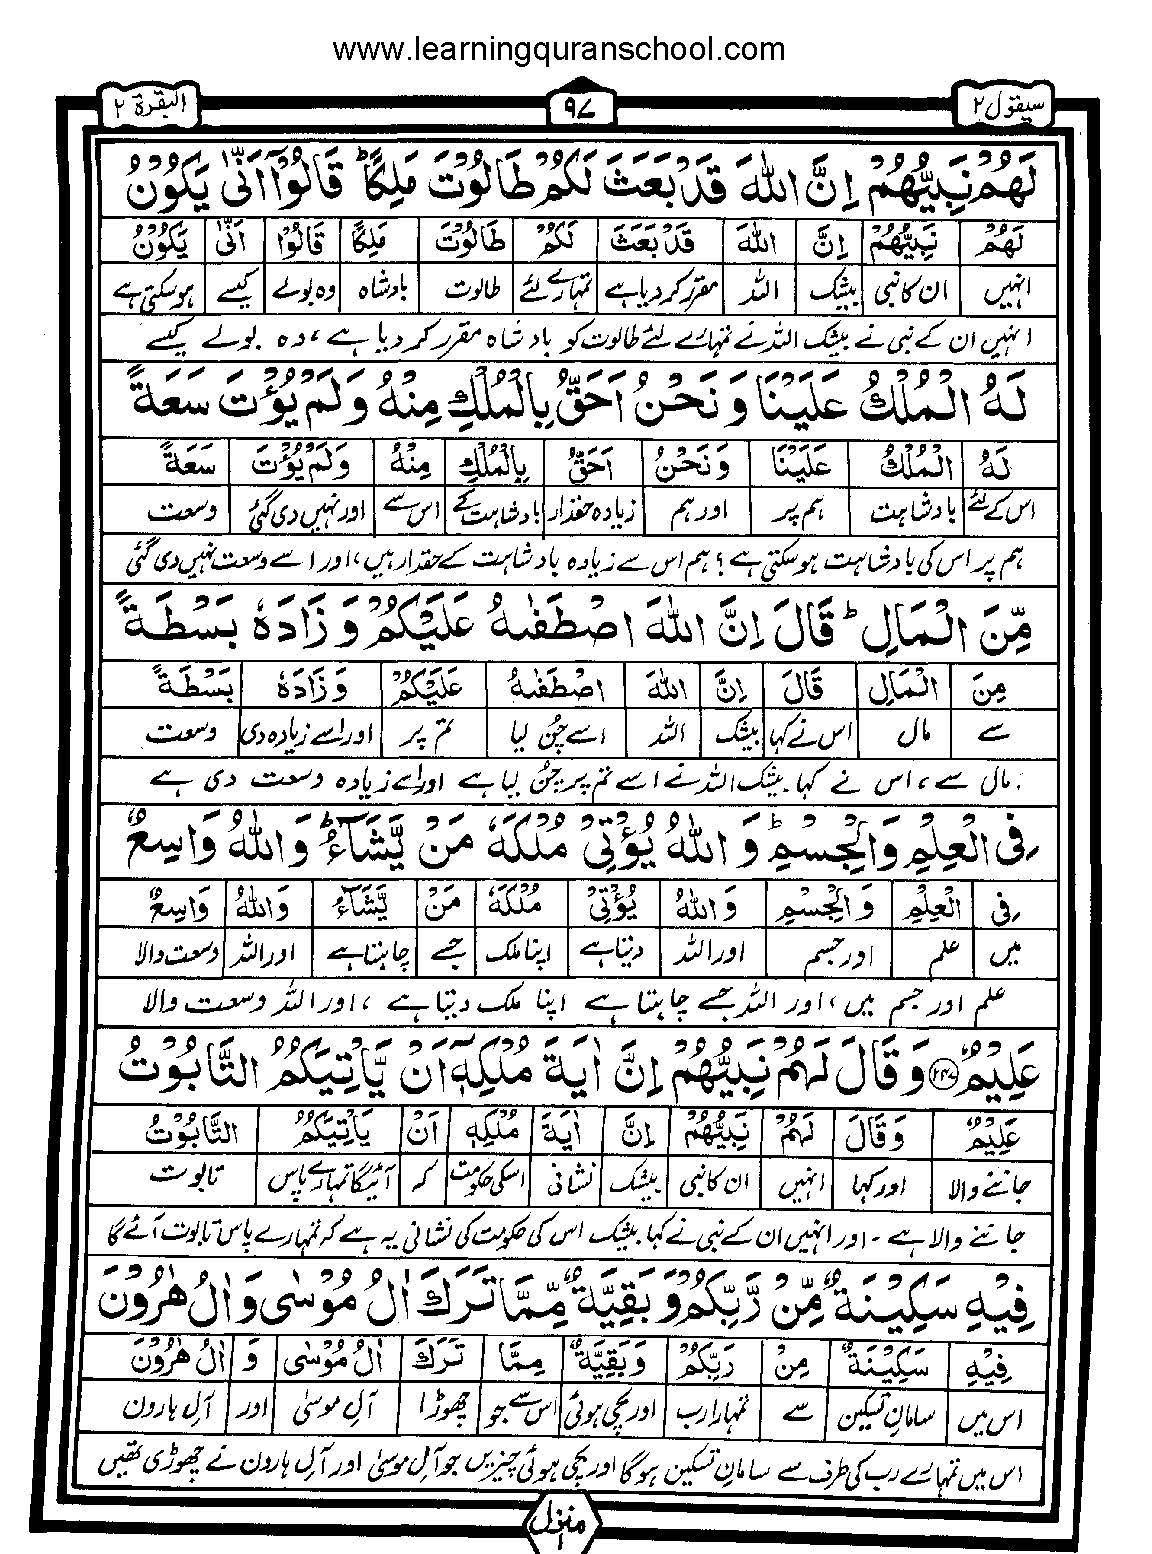 www.learningquranschool.com
سیقول ۲
۹۷
البقرۃ ۲
لَهُمْ نَبِيُّهُمْ اِنَّ اللّٰهَ قَدْ بَعَثَ لَكُمْ طَالُوْتَ مَلِكًا ؕ قَالُوْۤا اَنّٰى يَكُوْنُ
لَهُمْ نَبِيُّهُمْ اِنَّ اللّٰهَ قَدْ بَعَثَ لَكُمْ طَالُوْتَ مَلِكًا قَالُوْا اَنّٰى يَكُوْنُ
انہیں ان کا نبی بیشک اللہ مقرر کردیا ہے تمہارے لئے طالوت بادشاہ وہ بولے کیسے ہوسکتی ہے
انہیں ان کے نبی نے بیشک اللہ نے تمہارے لئے طالوت کو بادشاہ مقرر کردیا ہے ، وہ بولے کیسے
لَهُ الْمُلْكُ عَلَيْنَا وَنَحْنُ اَحَقُّ بِالْمُلْكِ مِنْهُ وَلَمْ يُؤْتَ سَعَةً
لَهُ الْمُلْكُ عَلَيْنَا وَنَحْنُ اَحَقُّ بِالْمُلْكِ مِنْهُ وَلَمْ يُؤْتَ سَعَةً
اس کے لئے بادشاہت ہم پر اور ہم زیادہ حقدار بادشاہت کے اس سے اور نہیں دی گئی وسعت
ہم پر اس کی بادشاہت ہوسکتی ہے ؟ ہم اس سے زیادہ بادشاہت کے حقدار ہیں ، اور اسے وسعت نہیں دی گئی
مِّنَ الْمَالِ ؕ قَالَ اِنَّ اللّٰهَ اصْطَفٰىهُ عَلَيْكُمْ وَزَادَهٗ بَسْطَةً
مِنَ الْمَالِ قَالَ اِنَّ اللّٰهَ اصْطَفٰىهُ عَلَيْكُمْ وَزَادَهٗ بَسْطَةً
سے مال اس نے کہا بیشک اللہ اسے چُن لیا تم پر اور اسے زیادہ دی وسعت
مال سے ، اس نے کہا بیشک اللہ نے اسے تم پر چُن لیا ہے اور اسے زیادہ وسعت دی ہے
فِى الْعِلْمِ وَالْجِسْمِ ؕ وَاللّٰهُ يُؤْتِىْ مُلْكَهٗ مَنْ يَّشَآءُ ؕ وَاللّٰهُ وَاسِعٌ
فِى الْعِلْمِ وَالْجِسْمِ وَاللّٰهُ يُؤْتِىْ مُلْكَهٗ مَنْ يَّشَآءُ وَاللّٰهُ وَاسِعٌ
میں علم اور جسم اور اللہ دیتا ہے اپنا ملک جسے چاہتا ہے اور اللہ وسعت والا
علم اور جسم میں ، اور اللہ جسے چاہتا ہے اپنا ملک دیتا ہے ، اور اللہ وسعت والا
عَلِيْمٌ ۲۴۷ وَقَالَ لَهُمْ نَبِيُّهُمْ اِنَّ اٰيَةَ مُلْكِهٖۤ اَنْ يَّاْتِيَكُمُ التَّابُوْتُ
عَلِيْمٌ وَقَالَ لَهُمْ نَبِيُّهُمْ اِنَّ اٰيَةَ مُلْكِهٖ اَنْ يَاْتِيَكُمُ التَّابُوْتُ
جاننے والا اور کہا انہیں ان کا نبی بیشک نشانی اسکی حکومت کہ آئیگا تمہارے پاس تابوت
جاننے والا ہے ۔ اور انہیں ان کے نبی نے کہا بیشک اس کی حکومت کی نشانی یہ ہے کہ تمہارے پاس تابوت آئے گا
فِيْهِ سَكِيْنَةٌ مِّنْ رَّبِّكُمْ وَبَقِيَّةٌ مِّمَّا تَرَكَ اٰلُ مُوْسٰى وَاٰلُ هٰرُوْنَ
فِيْهِ سَكِيْنَةٌ مِنْ رَبِّكُمْ وَبَقِيَّةٌ مِمَّا تَرَكَ اٰلُ مُوْسٰى وَ اٰلُ هٰرُوْنَ
اس میں سامانِ تسکین سے تمہارا رب اور بچی ہوئی اس سے جو چھوڑا آلِ موسیٰ اور آلِ ہارون
اس میں تمہارے رب کی طرف سے سامانِ تسکین ہوگا اور بچی ہوئی چیزیں جو آلِ موسیٰ اور آلِ ہارون نے چھوڑی تھیں
منزل ۱